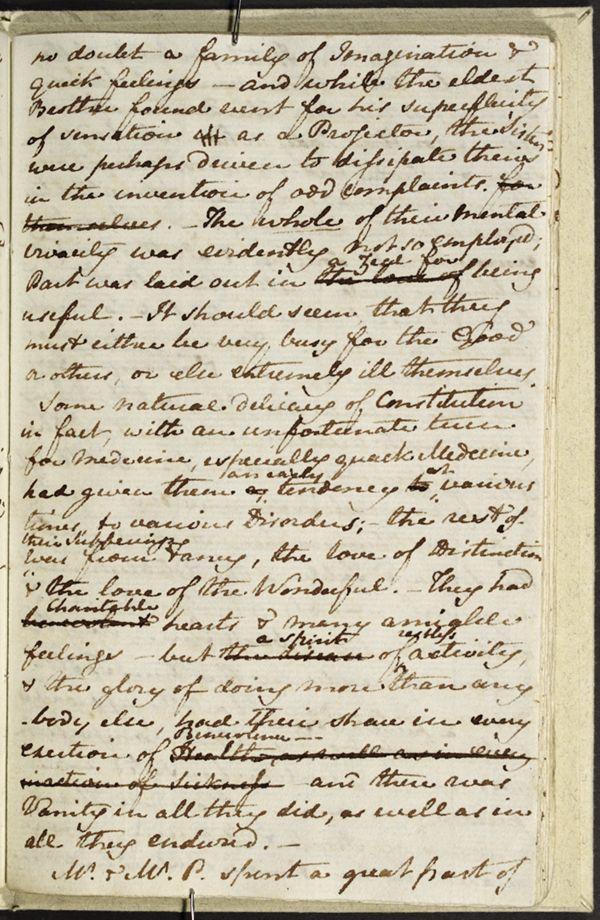 no doubt a family of Imagination &
quick feelings – and while the eldest
Brother found vent for his superfluity
of sensation as a Projector, the Sisters
were perhaps driven to dissipate theirs
in the invention of odd complaints. for
themselves. – The whole of their mental
vivacity was evidently not so employed;
a Zeal for
Part was laid out in the love of being
useful. – It should seem that they
must either be very busy for the Good
o others, or else extremely ill themselves.
Some natural delicacy of Constitution
in fact, with an unfortunate turn
for Medecine, especially quack Medecine,
an early at
had given them a tendency to various
times, to various Disorders; – the rest of
their sufferings
was from Fancy, the love of Distinction
& the love of the Wonderful. – They had
Charitable
benevolent hearts & many amiable
a spirit of restless
feelings – but the disease of activity,
& the glory of doing more than any
-body else, had their share in every
Benevolence –
exertion of Health, as well as in every
inaction of Sickness and there was
Vanity in all they did, as well as in
all they endured. –
Mr. & Mrs. P. spent a great part of